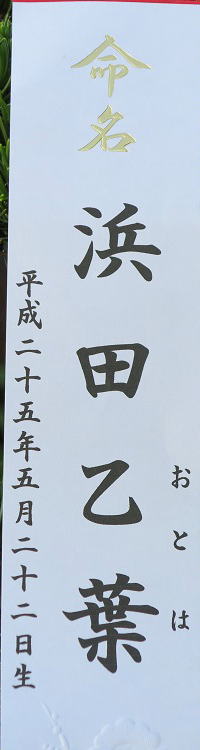 命名
浜田乙葉
おとは
平成二十五年五月二十二日生